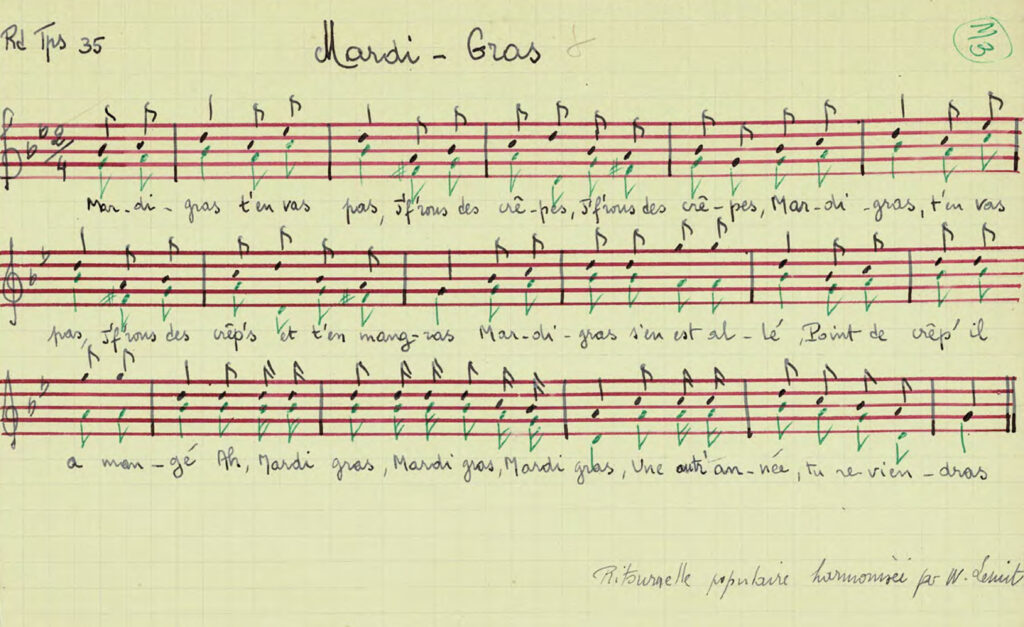 Rd Tps 35
Mardi - Gras
N3
2/4
Mar-di-gras t'en vas pas, J'f'rons des crê-pes, J'f'rons des crê-pes, Mar-di-gras, t'en vas
pas, J'f'rons des crêp's et t'en mang'-ras Mar-di-gras s'en est al-lé, Point de crêp' il
a man-gé Ah, Mardi gras, Mardi gras, Mardi gras, Une autr' an-née, tu re-vien-dras
Ritournelle populaire harmonisée par W.